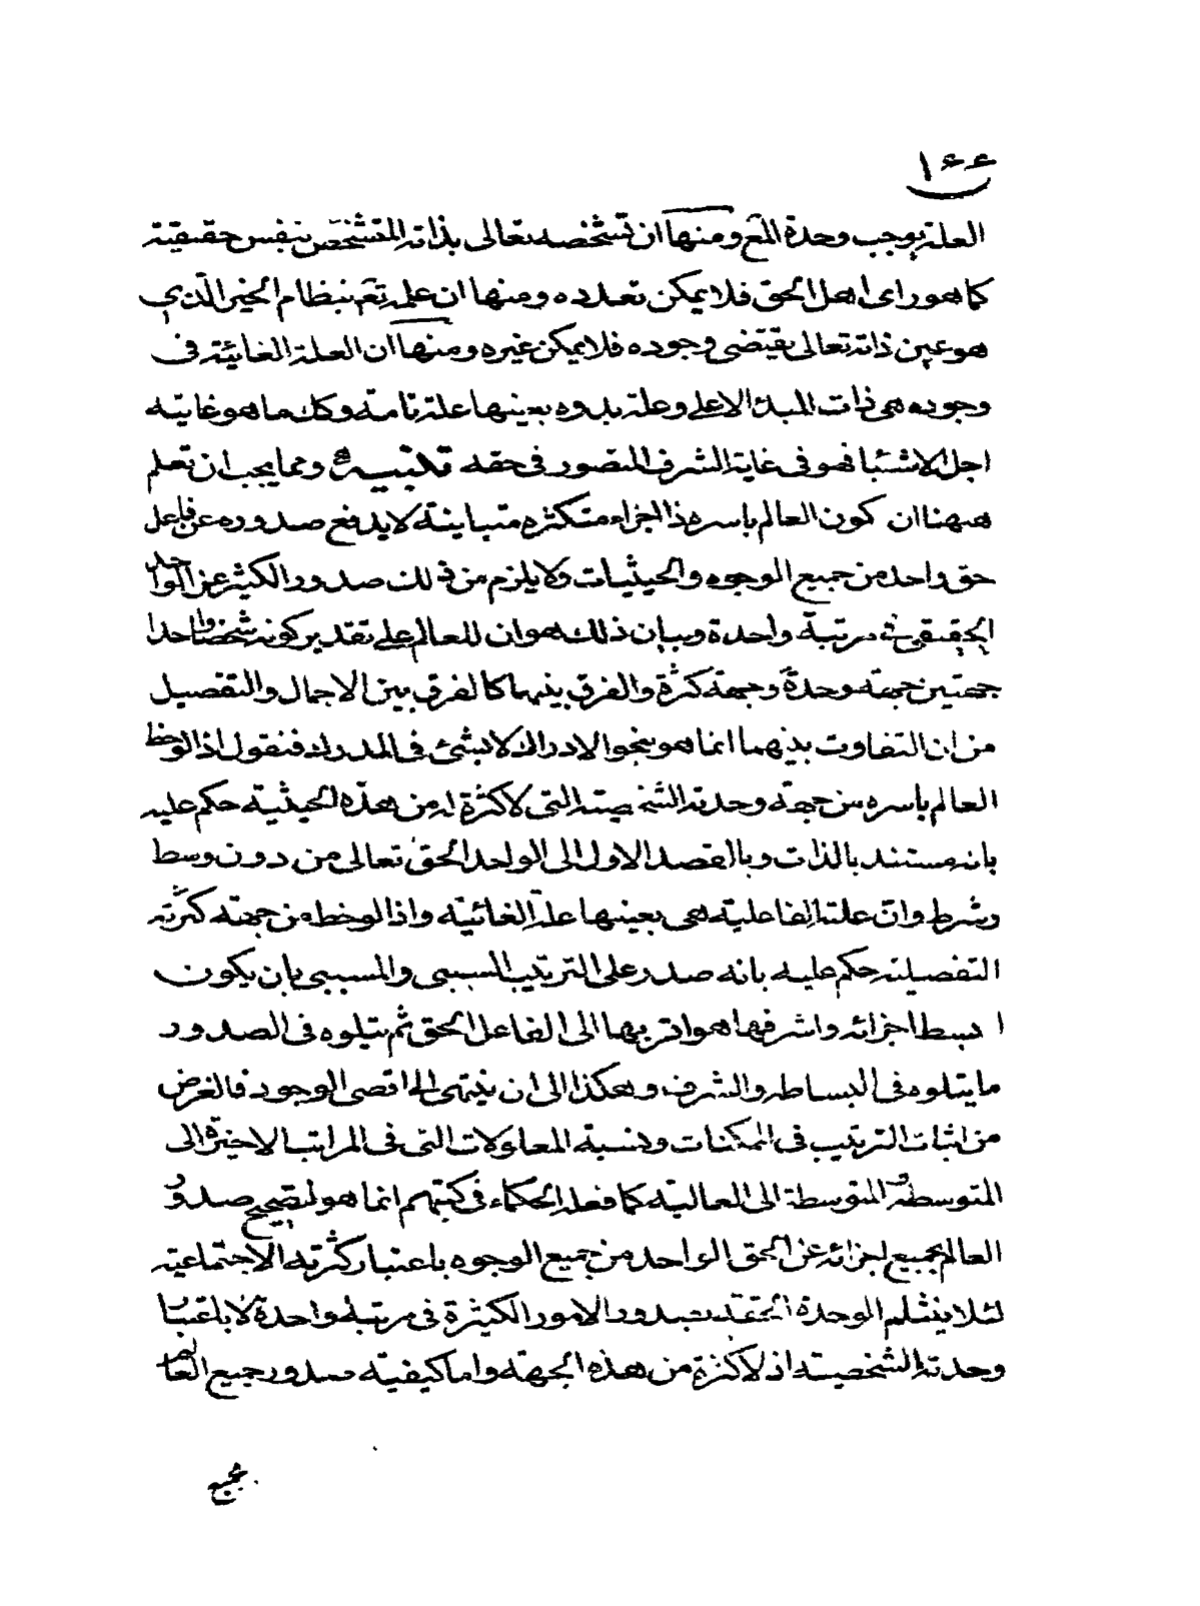 ١٤٤
العلة يوجب وحدة المع ومنها ان تشخصه تعالى بذاته المتشخص بنفس حقيقته
كما هو راى اهل الحق فلا يمكن تعدده ومنها ان علمه تع بنظام الخير الذي
هو عين ذاته تعالى يقتضى وجوده فلا يمكن غيره ومنها ان العلة الغائية فى
وجوده هى ذات المبدء الاعلى وعلة بدوه بعينها علة تامة وكل ما هو غايته
اجل الاشيا فهو فى غاية الشرف المتصور فى حقه تنبيه ومما يجب ان تعلم
ههنا ان كون العالم باسره ذا اجزاء متكثره متباينة لا يدفع صدوره عن فاعل
حق واحد من جميع الوجوه والحيثيات ولا يلزم من ذلك صدور الكثير عن الواحد
الحقيقى فى مرتبة واحدة وبيان ذلك هو ان للعالم على تقدير كونه شخصا واحدا
جهتين جهة وحدة وجهة كثرة والفرق بينهما كالفرق بين الاجمال والتفصيل
من ان التفاوت بينهما انما هو بنحو الادراك لا بشئ فى المدرك فنقول اذا لوحظ
العالم باسره من جهة وحدته الشخصية التى لا كثرة له من هذه الحيثية حكم عليه
بانه مستند بالذات وبالقصد الاول الى الواحد الحق تعالى من دون وسط
وشرط وان علته الفاعلية هى بعينها علة الغائية واذا لوخط من جهة كثرته
التفصيلة حكم عليه بانه صدر على الترتيب السببى والمسببى بان يكون
ابسط اجزائه واشرفها هو اقربها الى الفاعل الحق ثم يتلوه فى الصدور
ما يتلوه فى البساطه والشرف وهكذا الى ان ينتهى الى اقصى الوجود فالغرض
من اثبات الترتيب فى الممكنات ونسبة المعلولات التى فى المراتب الاخيرة الى
المتوسطه والمتوسطة الى العالية كما فعله الحكماء فى كتبهم انما هو لتصحيح صدور
العالم بجميع اجزائه عن الحق الواحد من جميع الوجوه باعتبار كثرته الاجتماعية
لئلا ينثلم الوحدة الحقة بصدور الامور الكثيرة فى مرتبة واحدة لا باعتبار
وحدته الشخصية اذ لا كثرة من هذه الجهة واما كيفية صدور جميع العالم
بجميع